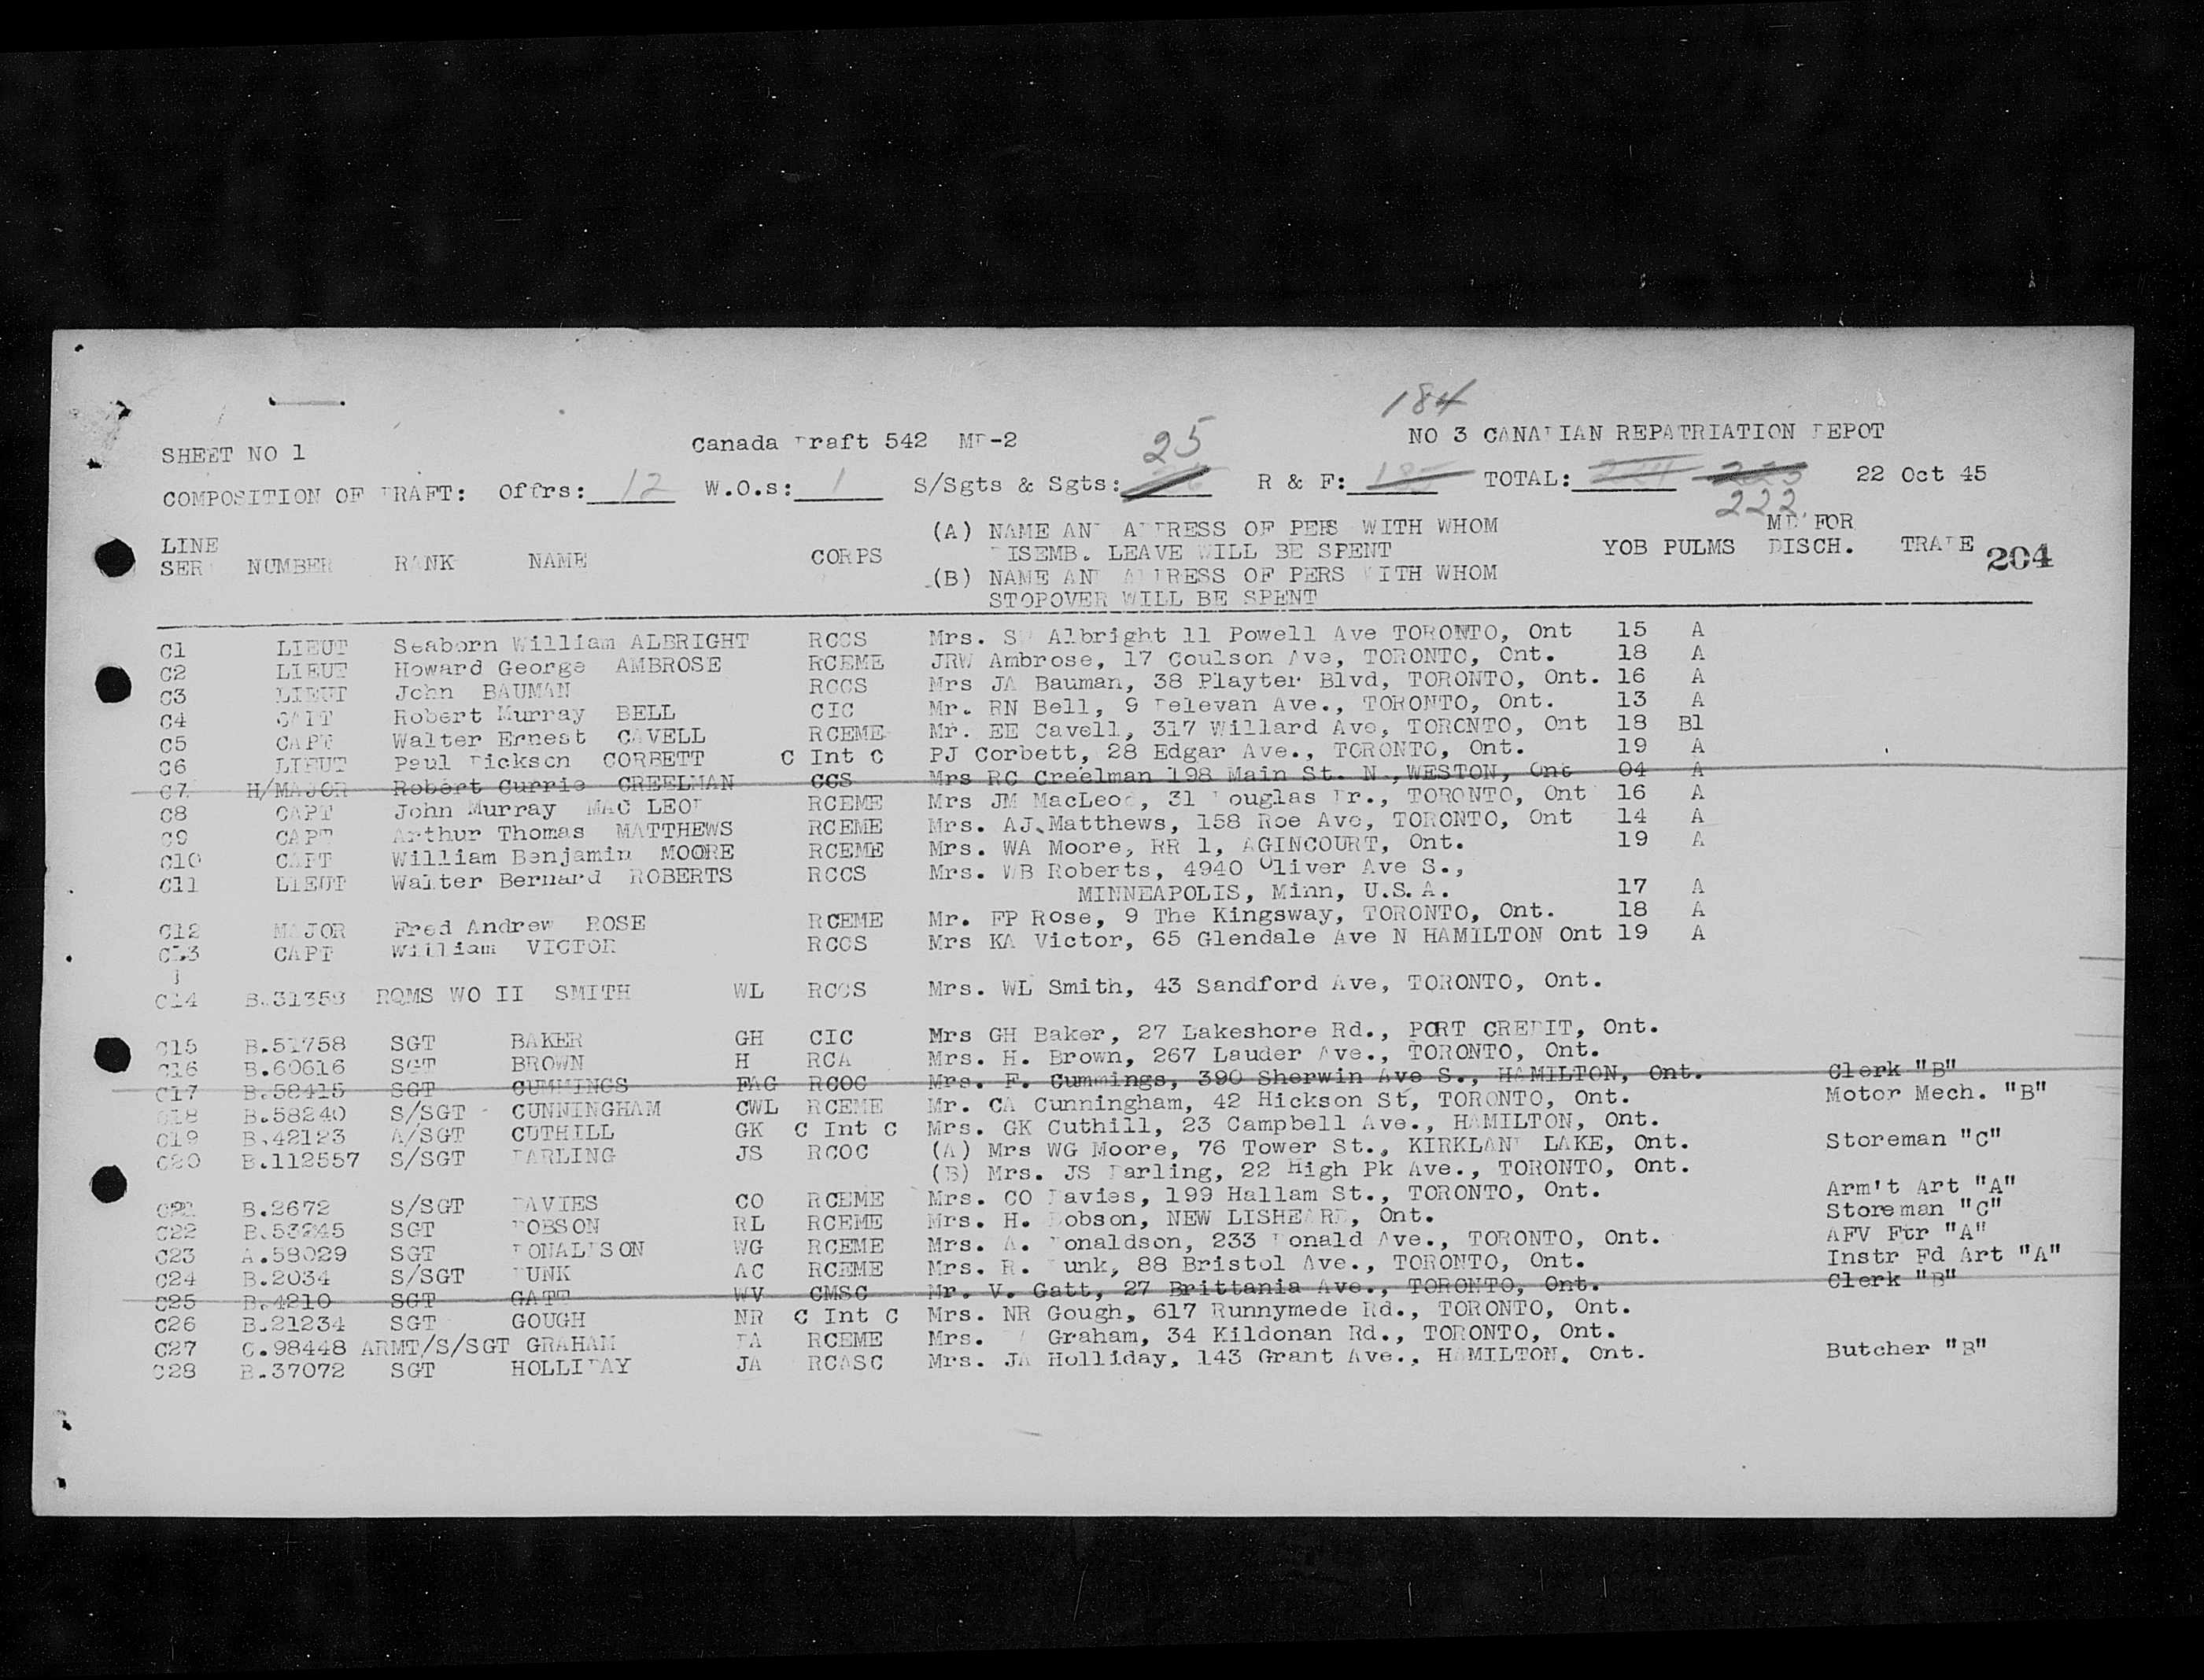 184
SHEET NO 1 Canada Draft 542 MD-2 25 NO 3 CANADIAN REPATRIATION DEPOT
COMPOSITION OF DRAFT: Offrs: 12 W.O.s: 1 S/Sgts & Sgts: R & F: 185 TOTAL: 224 223 22 Oct 45
222
LINE SER NUMBER RANK NAME CORPS (A) NAME AND ADDRESS OF PERS WITH WHOM DISEMB. LEAVE WILL BE SPENT YOB PULMS MD FOR DISCH. TRADE 204
(B) NAME AND ADDRESS OF PERS WITH WHOM
STOPOVER WILL BE SPENT
C1 LIEUT Seaborn William ALBRIGHT RCCS Mrs. SW Albright 11 Powell Ave TORONTO, Ont 15 A
C2 LIEUT Howard George AMBROSE RCEME JRW Ambrose, 17 Coulson Ave, TORONTO, Ont. 18 A
C3 LIEUT John BAUMAN RCCS Mrs JA Bauman, 38 Playter Blvd, TORONTO, Ont. 16 A
C4 CAPT Robert Murray BELL CIC Mr. RN Bell, 9 Delevan Ave., TORONTO, Ont. 13 A
C5 CAPT Walter Ernest CAVELL RCEME Mr. EE Cavell, 317 Willard Ave, TORONTO, Ont 18 B1
C6 LIEUT Paul Dickson CORBETT C Int C PJ Corbett, 28 Edgar Ave., TORONTO, Ont. 19 A
C7 H/MAJOR Robert Currie CREELMAN CCS Mrs RC Creelman 198 Main St. N., WESTON, Ont 04 A
C8 CAPT John Murray MAC LEOD RCEME Mrs JM MacLeod, 31 Douglas Dr., TORONTO, Ont 16 A
C9 CAPT Arthur Thomas MATTHEWS RCEME Mrs. AJ Matthews, 158 Roe Ave, TORONTO, Ont 14 A
C10 CAPT William Benjamin MOORE RCEME Mrs. WA Moore, RR 1, AGINCOURT, Ont. 19 A
C11 LIEUT Walter Bernard ROBERTS RCCS Mrs. WB Roberts, 4940 Oliver Ave S.,
MINNEAPOLIS, Minn, U.S.A. 17 A
C12 MAJOR Fred Andrew ROSE RCEME Mr. FP Rose, 9 The Kingsway, TORONTO, Ont. 18 A
C13 CAPT William VICTOR RCCS Mrs KA Victor, 65 Glendale Ave N HAMILTON Ont 19 A
C14 B.31358 RQMS WO II SMITH WL RCCS Mrs. WL Smith, 43 Sandford Ave, TORONTO, Ont.
C15 B.51758 SGT BAKER GH CIC Mrs GH Baker, 27 Lakeshore Rd., PORT CREDIT, Ont.
C16 B.60616 SGT BROWN H RCA Mrs. H. Brown, 267 Lauder Ave., TORONTO, Ont.
C17 B.58415 SGT CUMMINGS FAG RCOC Mrs. F. Cummings, 390 Sherwin Ave S., HAMILTON, Ont. Clerk "B"
C18 B.58240 S/SGT CUNNINGHAM CWL RCEME Mr. CA Cunningham, 42 Hickson St, TORONTO, Ont. Motor Mech. "B"
C19 B.42123 A/SGT CUTHILL GK C Int C Mrs. GK Cuthill, 23 Campbell Ave., HAMILTON, Ont.
C20 B.112557 S/SGT DARLING JS RCOC (A) Mrs WG Moore, 76 Tower St., KIRKLAND LAKE, Ont. Storeman "C"
(B) Mrs. JS Darling, 22 High Pk Ave., TORONTO, Ont.
C21 B.2672 S/SGT DAVIES CO RCEME Mrs. CO Davies, 199 Hallam St., TORONTO, Ont. Arm't Art "A"
C22 B.53245 SGT DOBSON RL RCEME Mrs. H. Dobson, NEW LISHEARD, Ont. Storeman "C"
C23 A.58029 SGT DONALDSON WG RCEME Mrs. A. Donaldson, 233 Donald Ave., TORONTO, Ont. AFV Ftr "A"
C24 B.2034 S/SGT DUNK AC RCEME Mrs. R. Dunk, 88 Bristol Ave., TORONTO, Ont. Instr Fd Art "A"
C25 B.4210 SGT GATT WV CMSC Mr. V. Gatt, 27 Brittania Ave., TORONTO, Ont. Clerk "B"
C26 B.21234 SGT GOUGH NR C Int C Mrs. NR Gough, 617 Runnymede Rd., TORONTO, Ont.
C27 C.98448 ARMT/S/SGT GRAHAM DA RCEME Mrs. Graham, 34 Kildonan Rd., TORONTO, Ont.
C28 B.37072 SGT HOLLIDAY JA RCASC Mrs. JA Holliday, 143 Grant Ave., HAMILTON, Ont. Butcher "B"